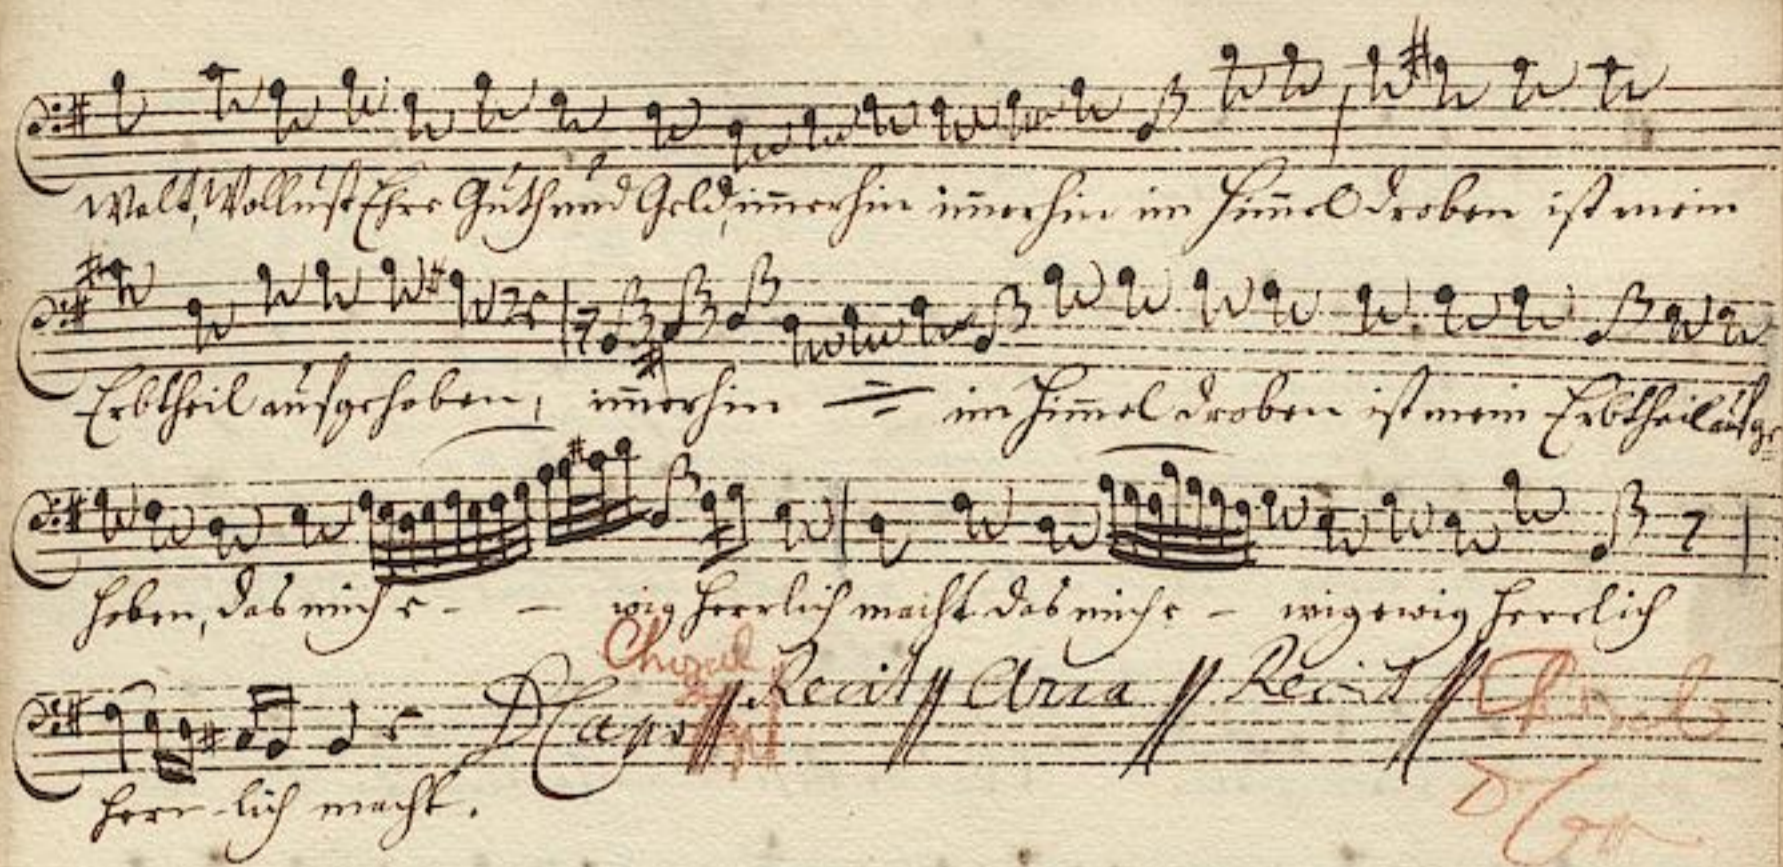 Welt, Wollust Ehre Guth und Geld, im̅erhin im̅erhin im Him̅el droben ist mein
Erbtheil aufgehoben, im̅erhin im Him̅el droben ist mein Erbtheil aufge-
hoben, das mich e - - wig herrlich macht das mich e - wig ewig herrlich
Choral
DCapo // Recit // Aria // Recit // Choral
herr-lich macht.